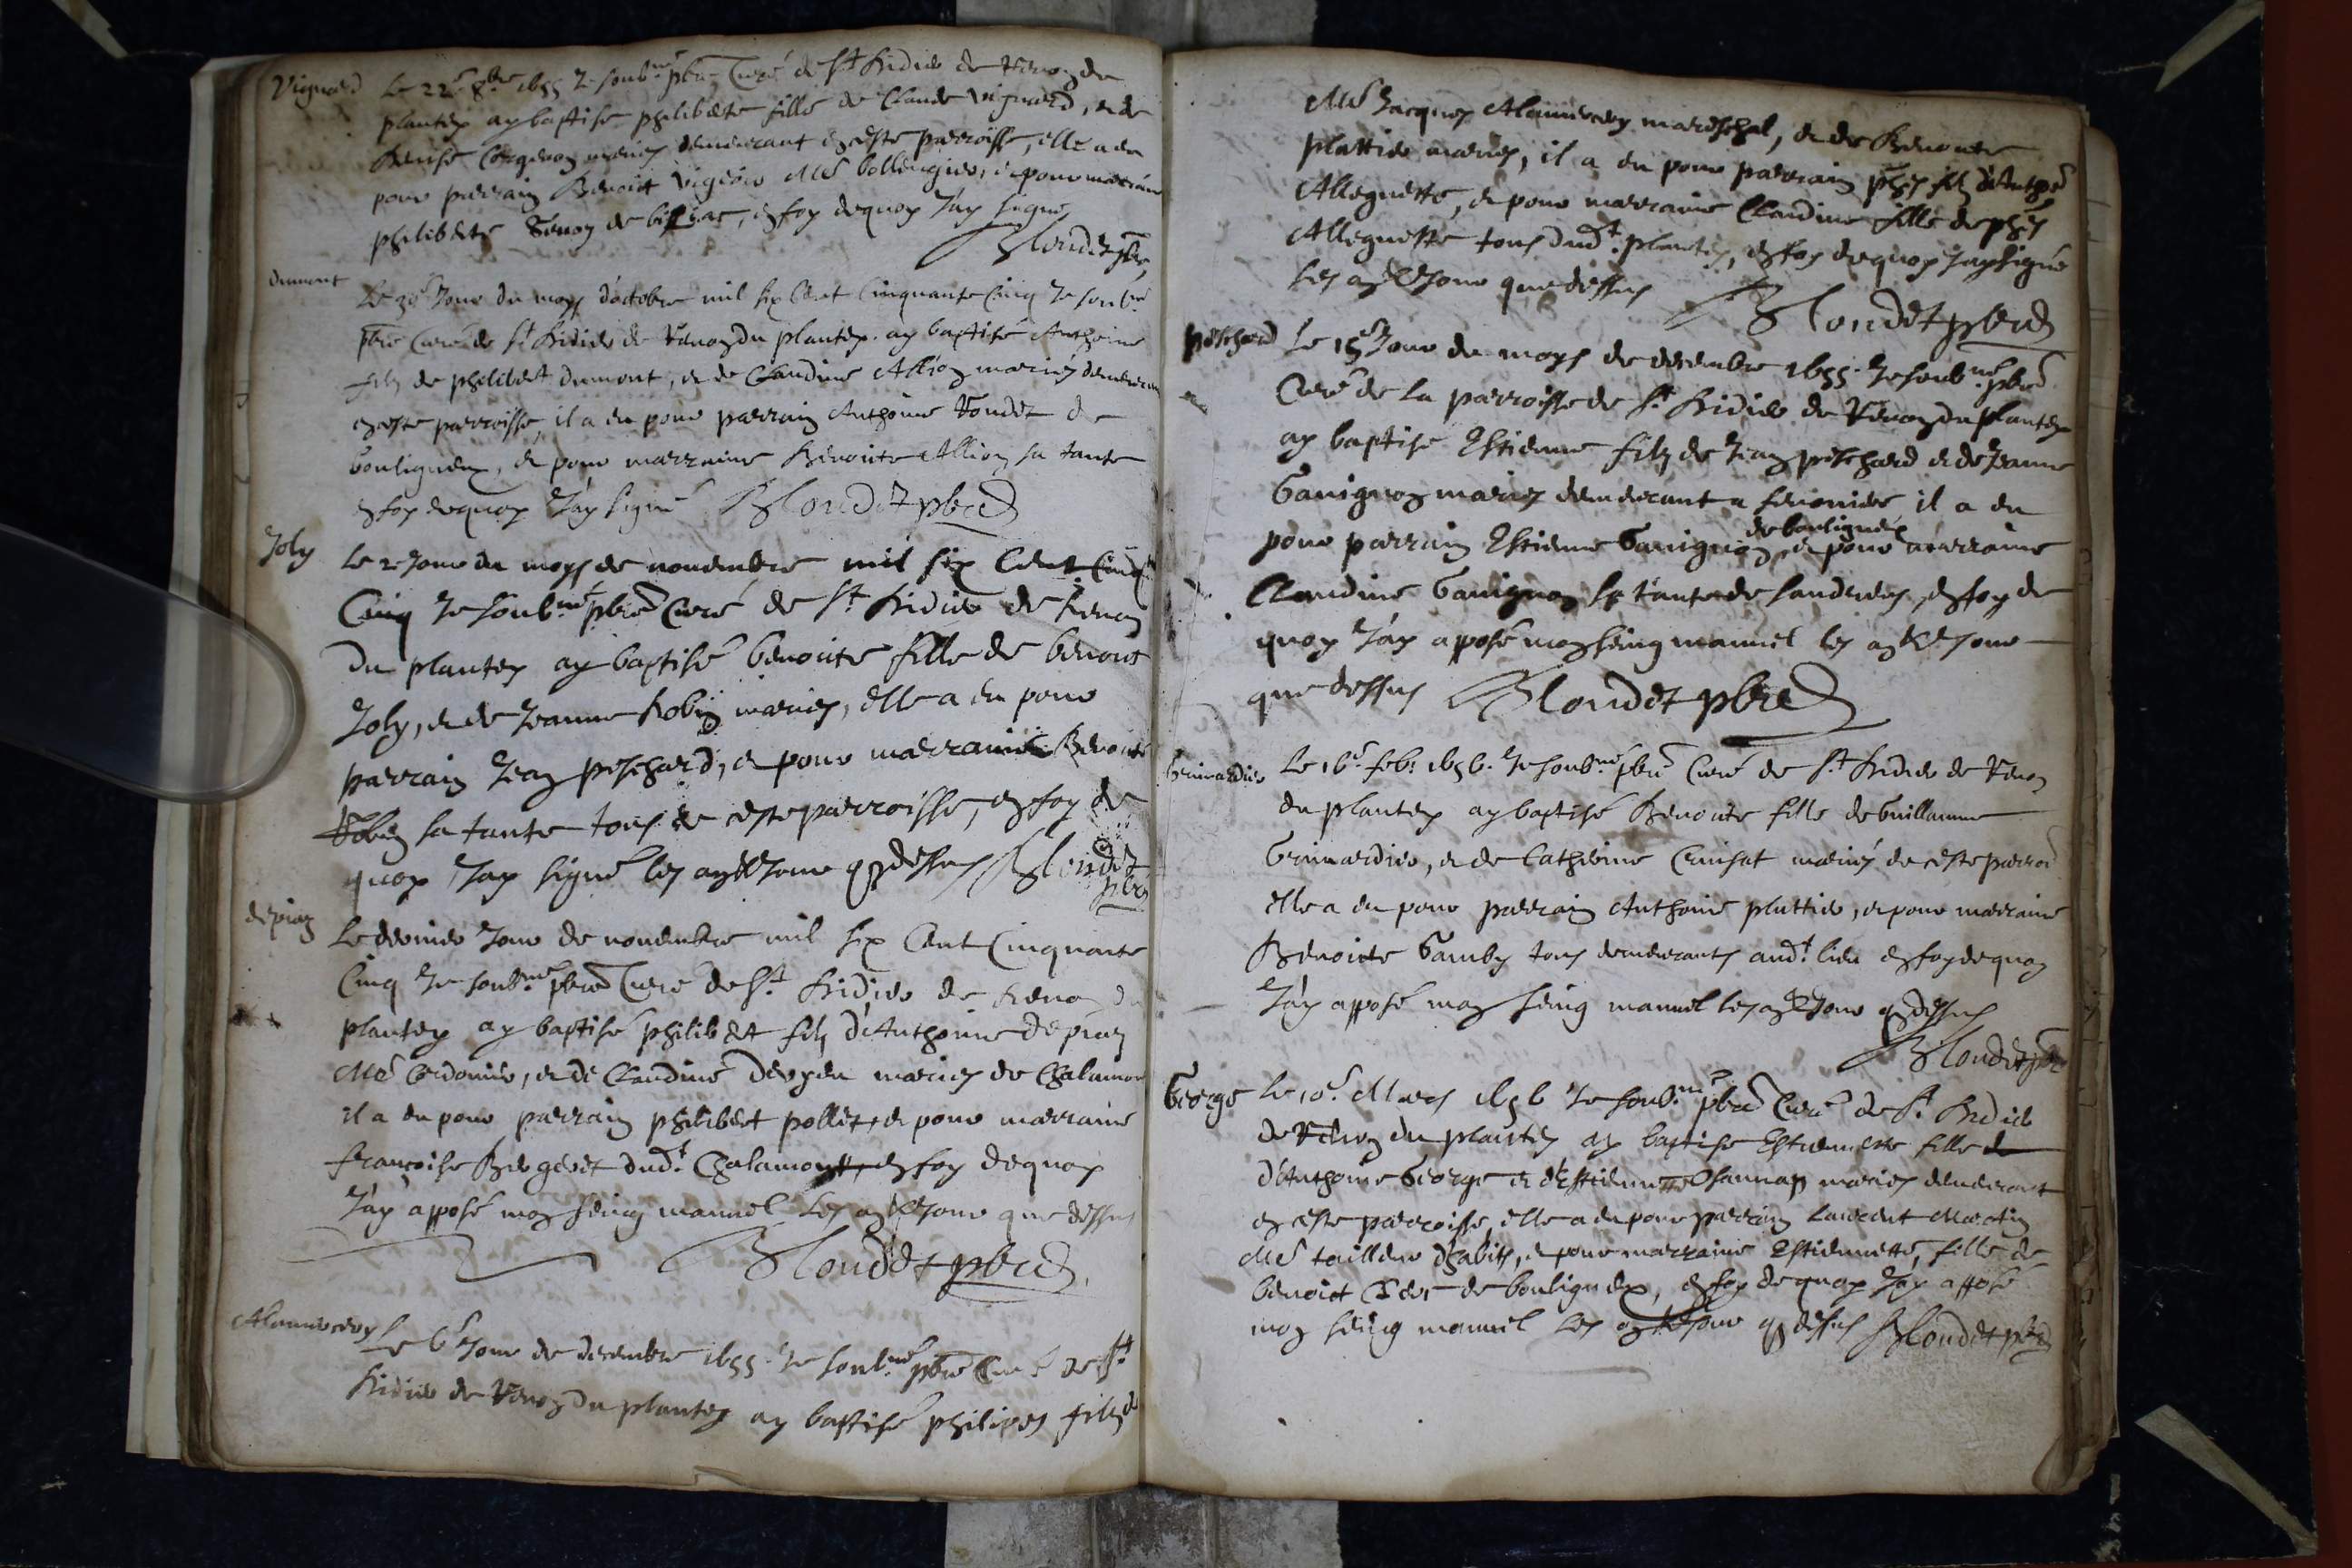 Vignard Le 22e 8bre 1655 Je soubné pbre Curé de St Didier de Renon du
plantey ay baptisé philiberte fille de Claude vignard, et de
Benoiste mariés demeurant en ceste parroisse, elle a eu
pour parrain Benoict Me bollengier, et pour marraine
philiberte de en foy dequoy Jay signé
Blondet pbre
dumont Le 30e Jour du moys d'octobre mil six Cent Cinquante Cinq Je soubné
pbre Curé de St Didier de Renon du plantey ay baptisé Anthoine
filz de philibert dumont, et de Claudine Allion mariés demeurant
en ceste parroisse, il a eu pour parrain Anthoine de
bouligneux, et pour marraine Benoiste Allion sa tante
en foy dequoy Jay signé Blondet pbre
Joly Le 2e Jour du moys de novembre mil six Cent Cinqte
Cinq Je soubné pbre Curé de St Didier de Renon
du plantey ay baptisé benoiste fille de benoict
Joly, et de Jeanne Robin mariés, elle a eu pour
parrain Jean peschard, et pour marraine Benoiste
Robin sa tante tous de ceste parroisse, en foy de
quoy Jay signé les an et Jour q dessus Blondet
pbre
depian Le dernier Jour de novembre mil six Cent Cinquante
Cinq Je soubné pbre Curé de St Didier de Renon du
plantey ay baptisé philibert filz d'Anthoine depian
Me Cordonier, et de Claudine mariés de Chalamont
il a eu pour parrain philibert pollet, et pour marraine
françoise Bergeret dudt Chalamont, en foy dequoy
Jay apposé mon seing manuel les an et Jour que dessus
Blondet pbre
Alamercery Le 6e Jour de decembre 1655 Je soubné pbre Curé de St
Didier de Renon du plantey ay baptisé philipes filz de
Me Jacques Alamercery mareschal, et de Benoiste
plattier mariés, il a eu pour parrain phes filz d'Anthne
Alleguette, et pour marraine Claudine fille de phes
Alleguette tous dudt plantey, en foy dequoy Jay signé
les an et Jour que dessus Blondet pbre
peschard Le 15e Jour du moys de decembre 1655 Je soubné pbre
Curé de la parroisse de St Didier de Renon du plantey
ay baptisé Estienne filz de Jean peschard et de Jeanne
Gavignon mariés demeurant a il a eu
de bouligneux
pour parrain Estienne Gavignon, et pour marraine
Claudine Gavignon sa tante de en foy de
quoy Jay apposé mon seing manuel les an et Jour
que dessus Blondet pbre
Grimardier Le 16e feb. 1656. Je soubné pbre Curé de St Didier de Renon
du plantey ay baptisé Benoiste fille de Guillaume
Grimardier, et de Catherine Cruisat mariés de ceste parroi
elle a eu pour parrain Anthoine plattier, et pour marraine
Benoiste Gamby tous demeurants audt lieu en foy dequoy
Jay apposé mon seing manuel les an et Jour q dessus
Blondet pbre
George Le 10e Mars 1656 Je soubné pbre Curé de St Didier
de Renon du plantey ay baptisé Estiennette fille de
d'Anthoine George et d'Estiennette mariés demeurant
en ceste parroisse, elle a eu pour parrain Laurent Martin
Me tailleur d'habits, et pour marraine Estiennette, fille de
benoict de bouligneux, en foy dequoy Jay apposé
mon seing manuel les an et Jour q dessus Blondet pbre